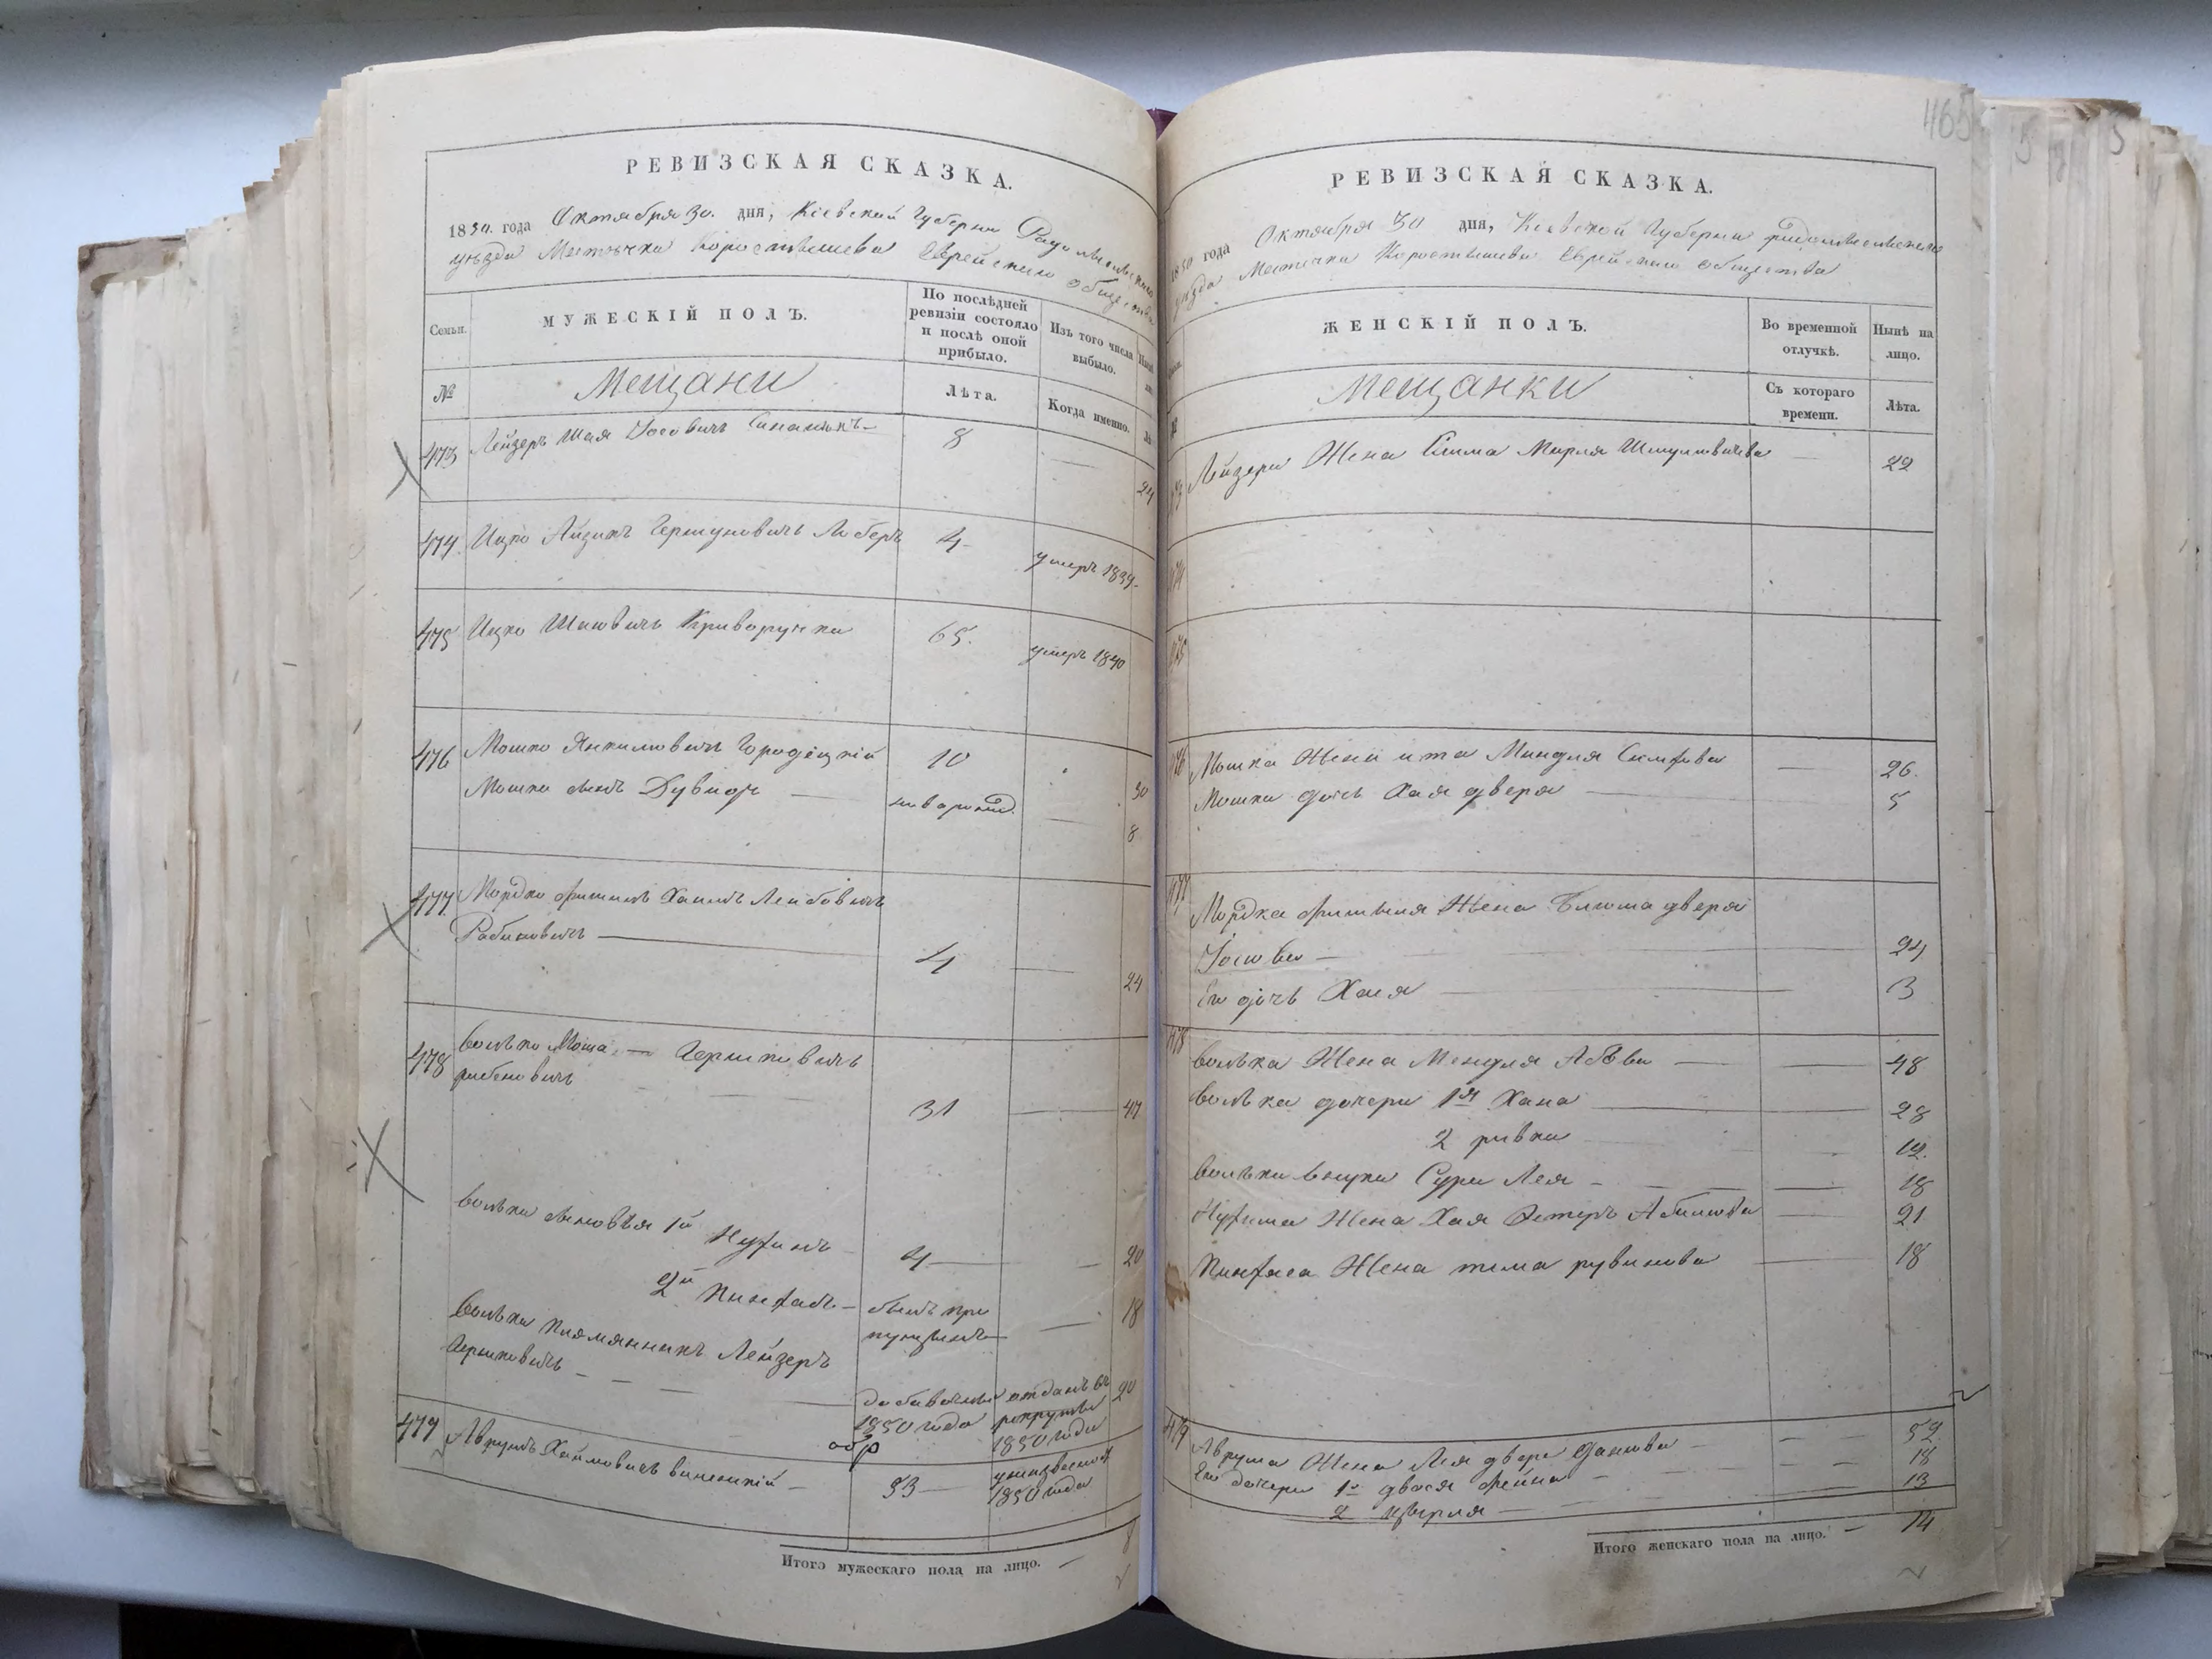 465
РЕВИЗСКАЯ СКАЗКА.
1850. года Октября 30. дня, Кіевской Губерніи Радомысльскаго
уезда Местечка Коростышева Еврейскаго общества
Семьи.
МУЖЕСКІЙ ПОЛЪ.
По послѣдней ревизіи состояло и послѣ оной прибыло.
Изъ того числа выбыло.
№
Мещани
Лѣта.
Когда именно.
473 Лейзеръ Шая Іосовичъ 8 — 24
474 Ицко Айзикъ Гершуновичъ Либеръ 4 умеръ 1839.
475 Ицко Шаевичъ Криворучка 65. умеръ 1840
476 Мошко Янкилевичъ Городецкій 10 30
Мошка сынъ Дувидъ — новорожд. — 8
477 Мордко Фишель Хаимъ Лейбовичъ
Рабиновичъ — 4 — 24
478 Волько Моша — Гершковичъ
рабиновичъ
31 — 47
Волька сыновья 1й Нухимъ 4 — 20
2й Пинхасъ — былъ пропущенъ — 18
Волька племянникъ Лейзеръ
Гершковичъ — добавочный 1850 года отданъ въ рекруты 1850 года 20
479 Аврумъ Хаимовичъ 53 — 1850 года
Итого мужескаго пола на лицо. — 8
РЕВИЗСКАЯ СКАЗКА.
1850 года Октября 30 дня, Кіевской Губерніи радомысльскаго
уезда Местечка Коростышева Еврейскаго общества
ЖЕНСКІЙ ПОЛЪ.
Во временной отлучкѣ.
Нынѣ на лицо.
Мещанки
Съ котораго времени.
Лѣта.
473 Лейзера Жена Сима Мирля Шмулевичева — 22
474
475
476 Мошка Жена ита Миндля — 26.
Мошка дочь Хая двера — 5
477 Мордка Фишеля Жена Блюма двера
Іосева — 24
Его дочь Хая — 3
478 Волька Жена Мендля — 48
Волька дочери 1я Хана — 28
2 ривка — 12.
Волька внука Сура Лея — 18
Нухима Жена Хая Эстеръ — 21
Пинхаса Жена рувинова — 18
479 Аврума Жена Лея двера — 52
Его дочери 1я двося Фейга — 18
2 Цивриля — 13
Итого женскаго пола на лицо. — 14